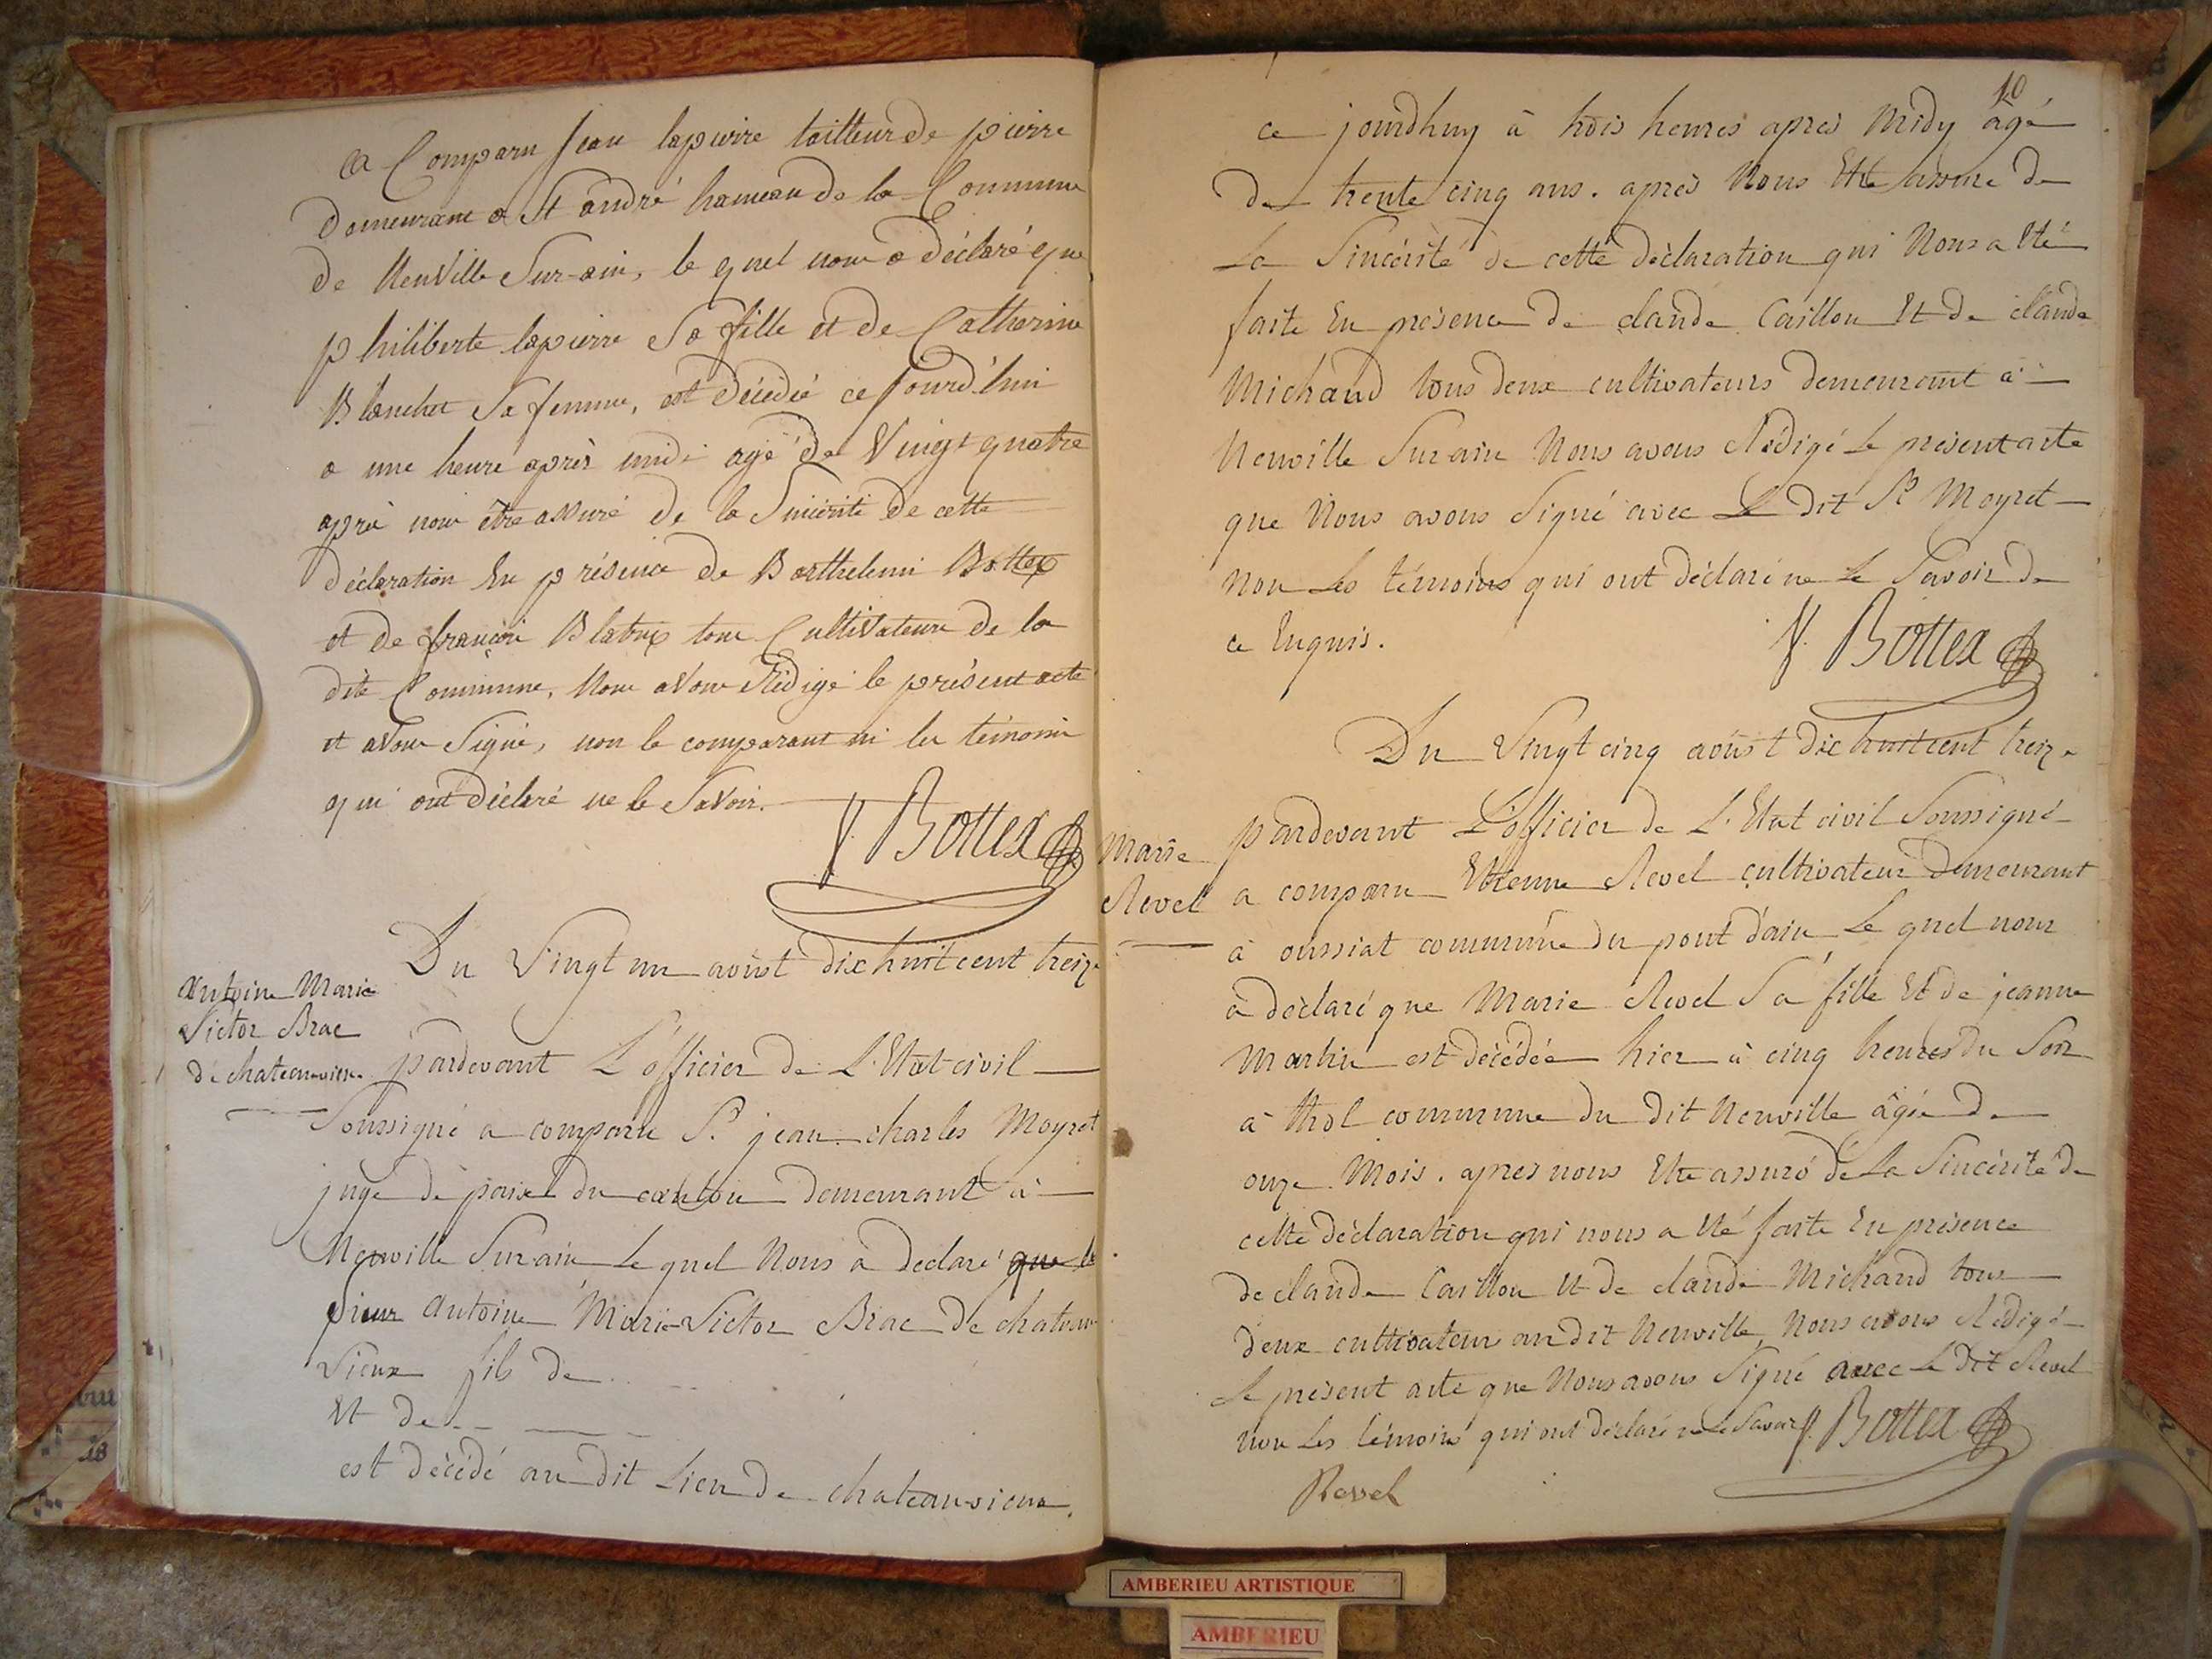 a Comparu Jean lapierre tailleur de pierre
demeurant a St andré hameau de la Commune
de Neuville Sur-ain, le quel nous a déclaré que
philiberte lapierre Sa fille et de Catherine
Blanchet Sa femme, est décédée ce jourd'hui
a une heure après midi agé de Vingt quatre
après nous être assuré de la Sincérité de cette
déclaration En présence de Barthelemi Bottex
et de françois Blatrix tous Cultivateurs de la
dite Commune, Nous avons Rédigé le présent acte
et avons Signé, non le comparant ni les témoins
qui ont déclaré ne le Savoir.
Bottex
Antoine Marie
Victor Brac
de chateauvieux
Du Vingt un aoûst dix huit cent treize
pardevant L'officier de L'Etat civil
Soussigné a comparu Sr. jean charles Moyret
juge de paix du canton demeurant à
Neuville Sur ain Le quel Nous à declaré que le
Sieur Antoine Marie Victor Brac de chateau
vieux fils de
Et de
est décédé au dit Lieu de chateauvieux.
10
ce jourdhuy à trois heures apres Midy âgé
de trente cinq ans. apres Nous Etre assuré de
La Sincérité de cette déclaration qui Nous a Eté
faite En présence de claude Caillon Et de claude
Michaud tous deux cultivateurs demeurant à
Neuville Sur ain Nous avons Rédigé Le présent acte
que Nous avons Signé avec Le dit Sr Moyret
non Les témoins qui ont déclaré ne Le Savoir de
ce Enquis.
Bottex
Marie
Revel
Du Vingt cinq aoûst dix huit cent treize
pardevant L'officier de L'Etat civil Soussigné
a comparu Etienne Revel cultivateur demeurant
à oussiat commune du pont d'ain Le quel nous
à déclaré que Marie Revel Sa fille Et de jeanne
Martin est décédée hier à cinq heures du Soir
à thol commune du dit Neuville âgée de
onze Mois. apres nous Etre assuré de La Sincérité de
cette déclaration qui nous a Eté faite En présence
de claude Caillon Et de claude Michaud tous
deux cultivateur au dit Neuville, Nous avons Rédigé
Le présent acte que Nous avons Signé avec Le dit Revel
non Les témoins qui ont déclaré ne Le Savoir
Bottex
Revel
AMBERIEU ARTISTIQUE
AMBERIEU